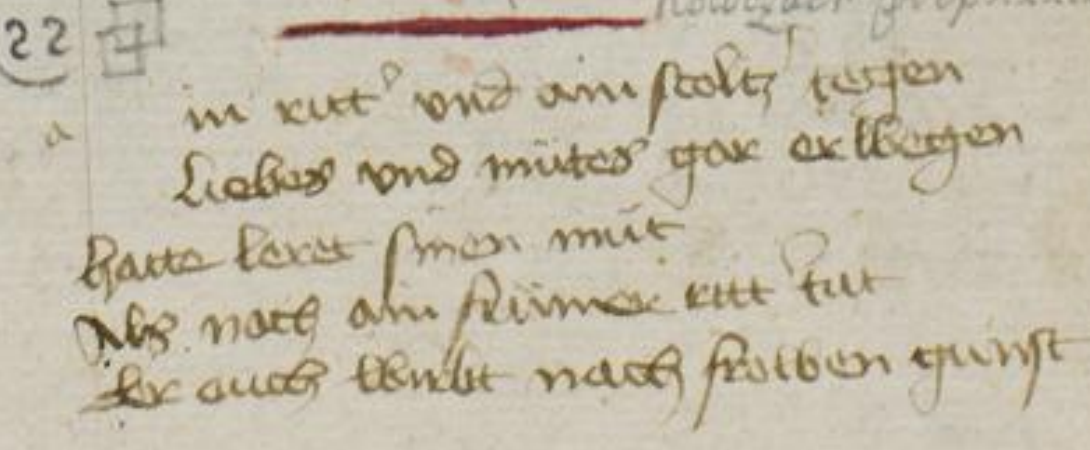 22
a
in ritt' vnd ain stoltz' tegen
Liebes vnd mutes gar erwegen
hatte keret sinen mut
Als noch ain frumer ritt' tut
Der auch wirbt nach frowen gunst